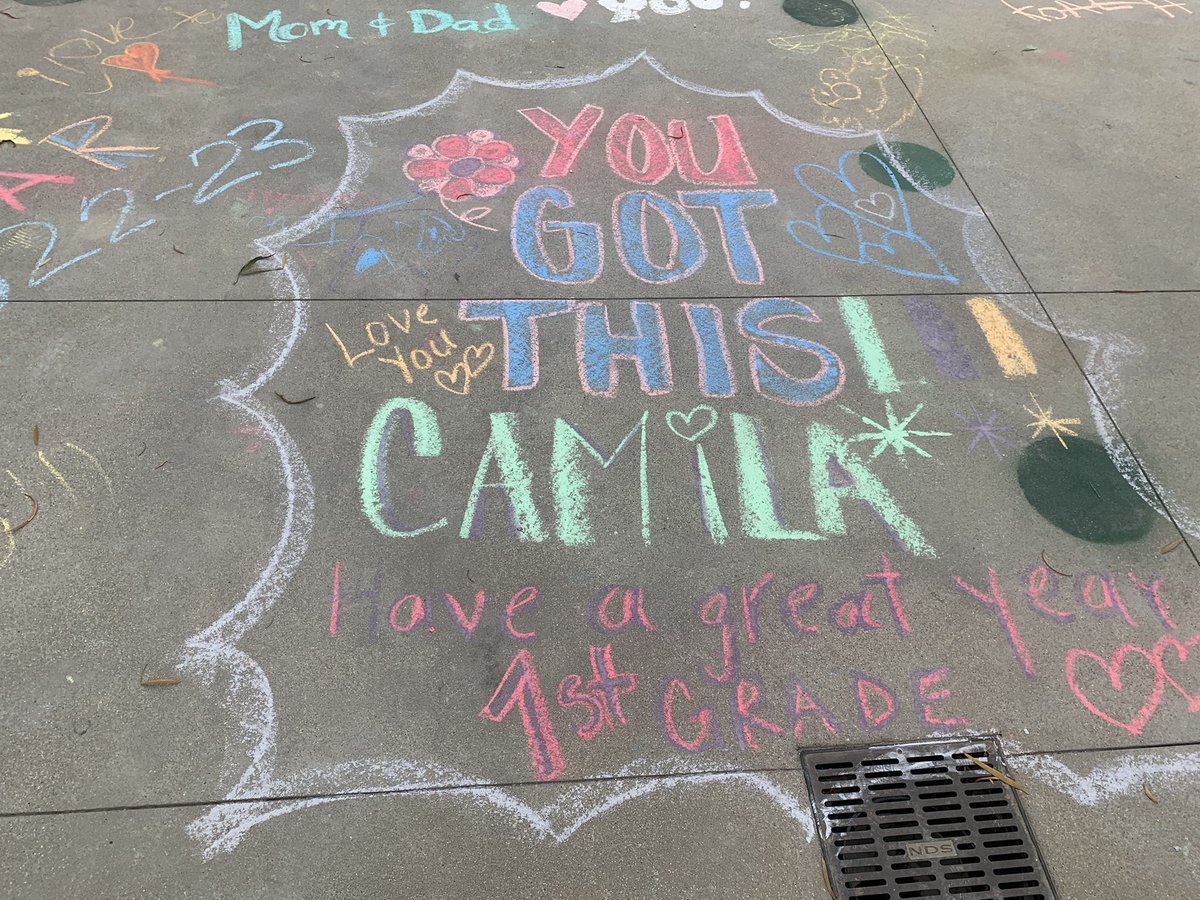 Mom & Dad
Love
22-23
YOU
GOT
THIS!!!
Love
You
CAMiLA
Have a great year
1st GRADE
NDS